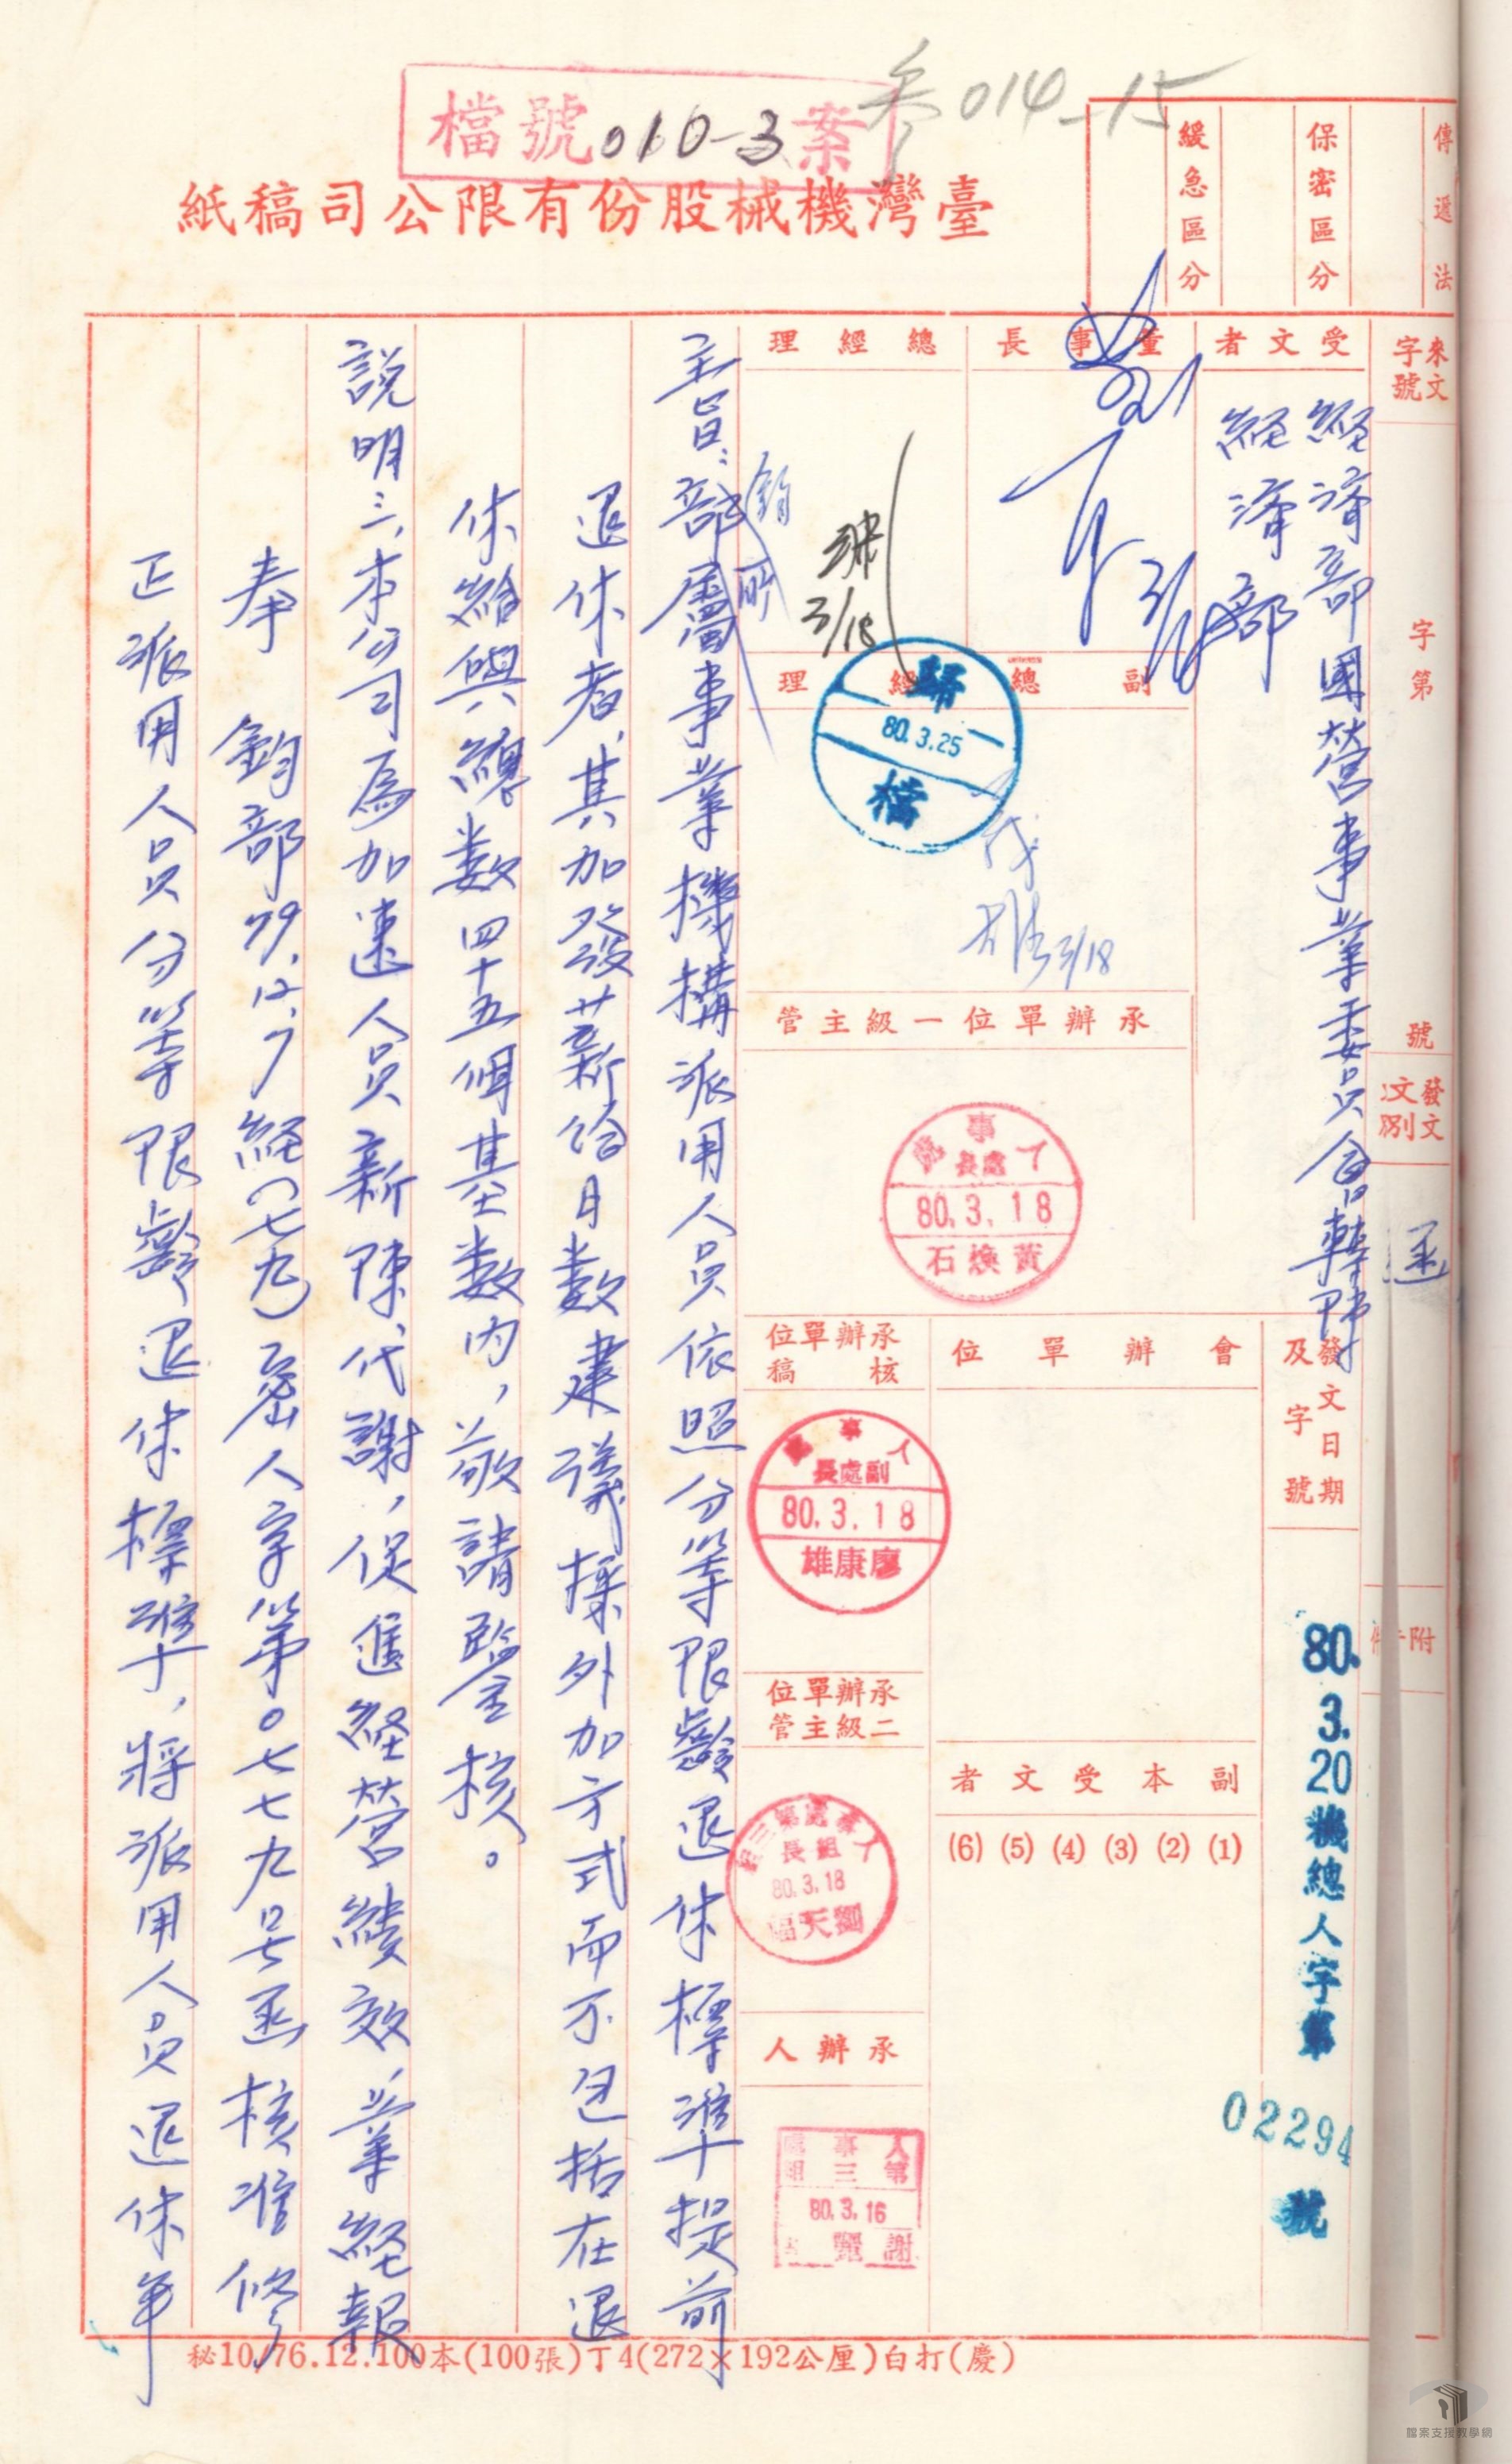 檔號010-3案
參014-15
臺灣機械股份有限公司稿紙
傳遞法
保密區分
緩急區分
來文字號
字第
號
發文
文別
函
附件
受文者
經濟部國營事業委員會轉陳
經濟部
發文日期及字號
80.3.20機總人字第
02294
號
董事長
總經理
3/18
副總經理
歸
80.3.25
檔
3/18
承辦單位一級主管
人事處
處長
80.3.18
黃煥石
會辦單位
承辦單位核稿
人事處
副處長
80.3.18
廖康雄
承辦單位二級主管
人事處第三組
組長
80.3.18
劉天福
副本受文者
(1)
(2)
(3)
(4)
(5)
(6)
承辦人
人事處
第三組
80.3.16
謝麗
主旨：部屬事業機構派用人員依照分等限齡退休標準提前
鈞
所
退休者，其加發薪給日數建議採外加方式而不包括在退
休給與總數四十五個基數內，敬請鑒核。
說明：三、本公司為加速人員新陳代謝，促進經營績效，業經報
奉　鈞部79.12.7經（七九）密人字第○七七九號函核准修
正派用人員分等限齡退休標準，將派用人員退休年
秘10,76.12.100本(100張)丁4(272×192公厘)白打(慶)
檔案支援教學網